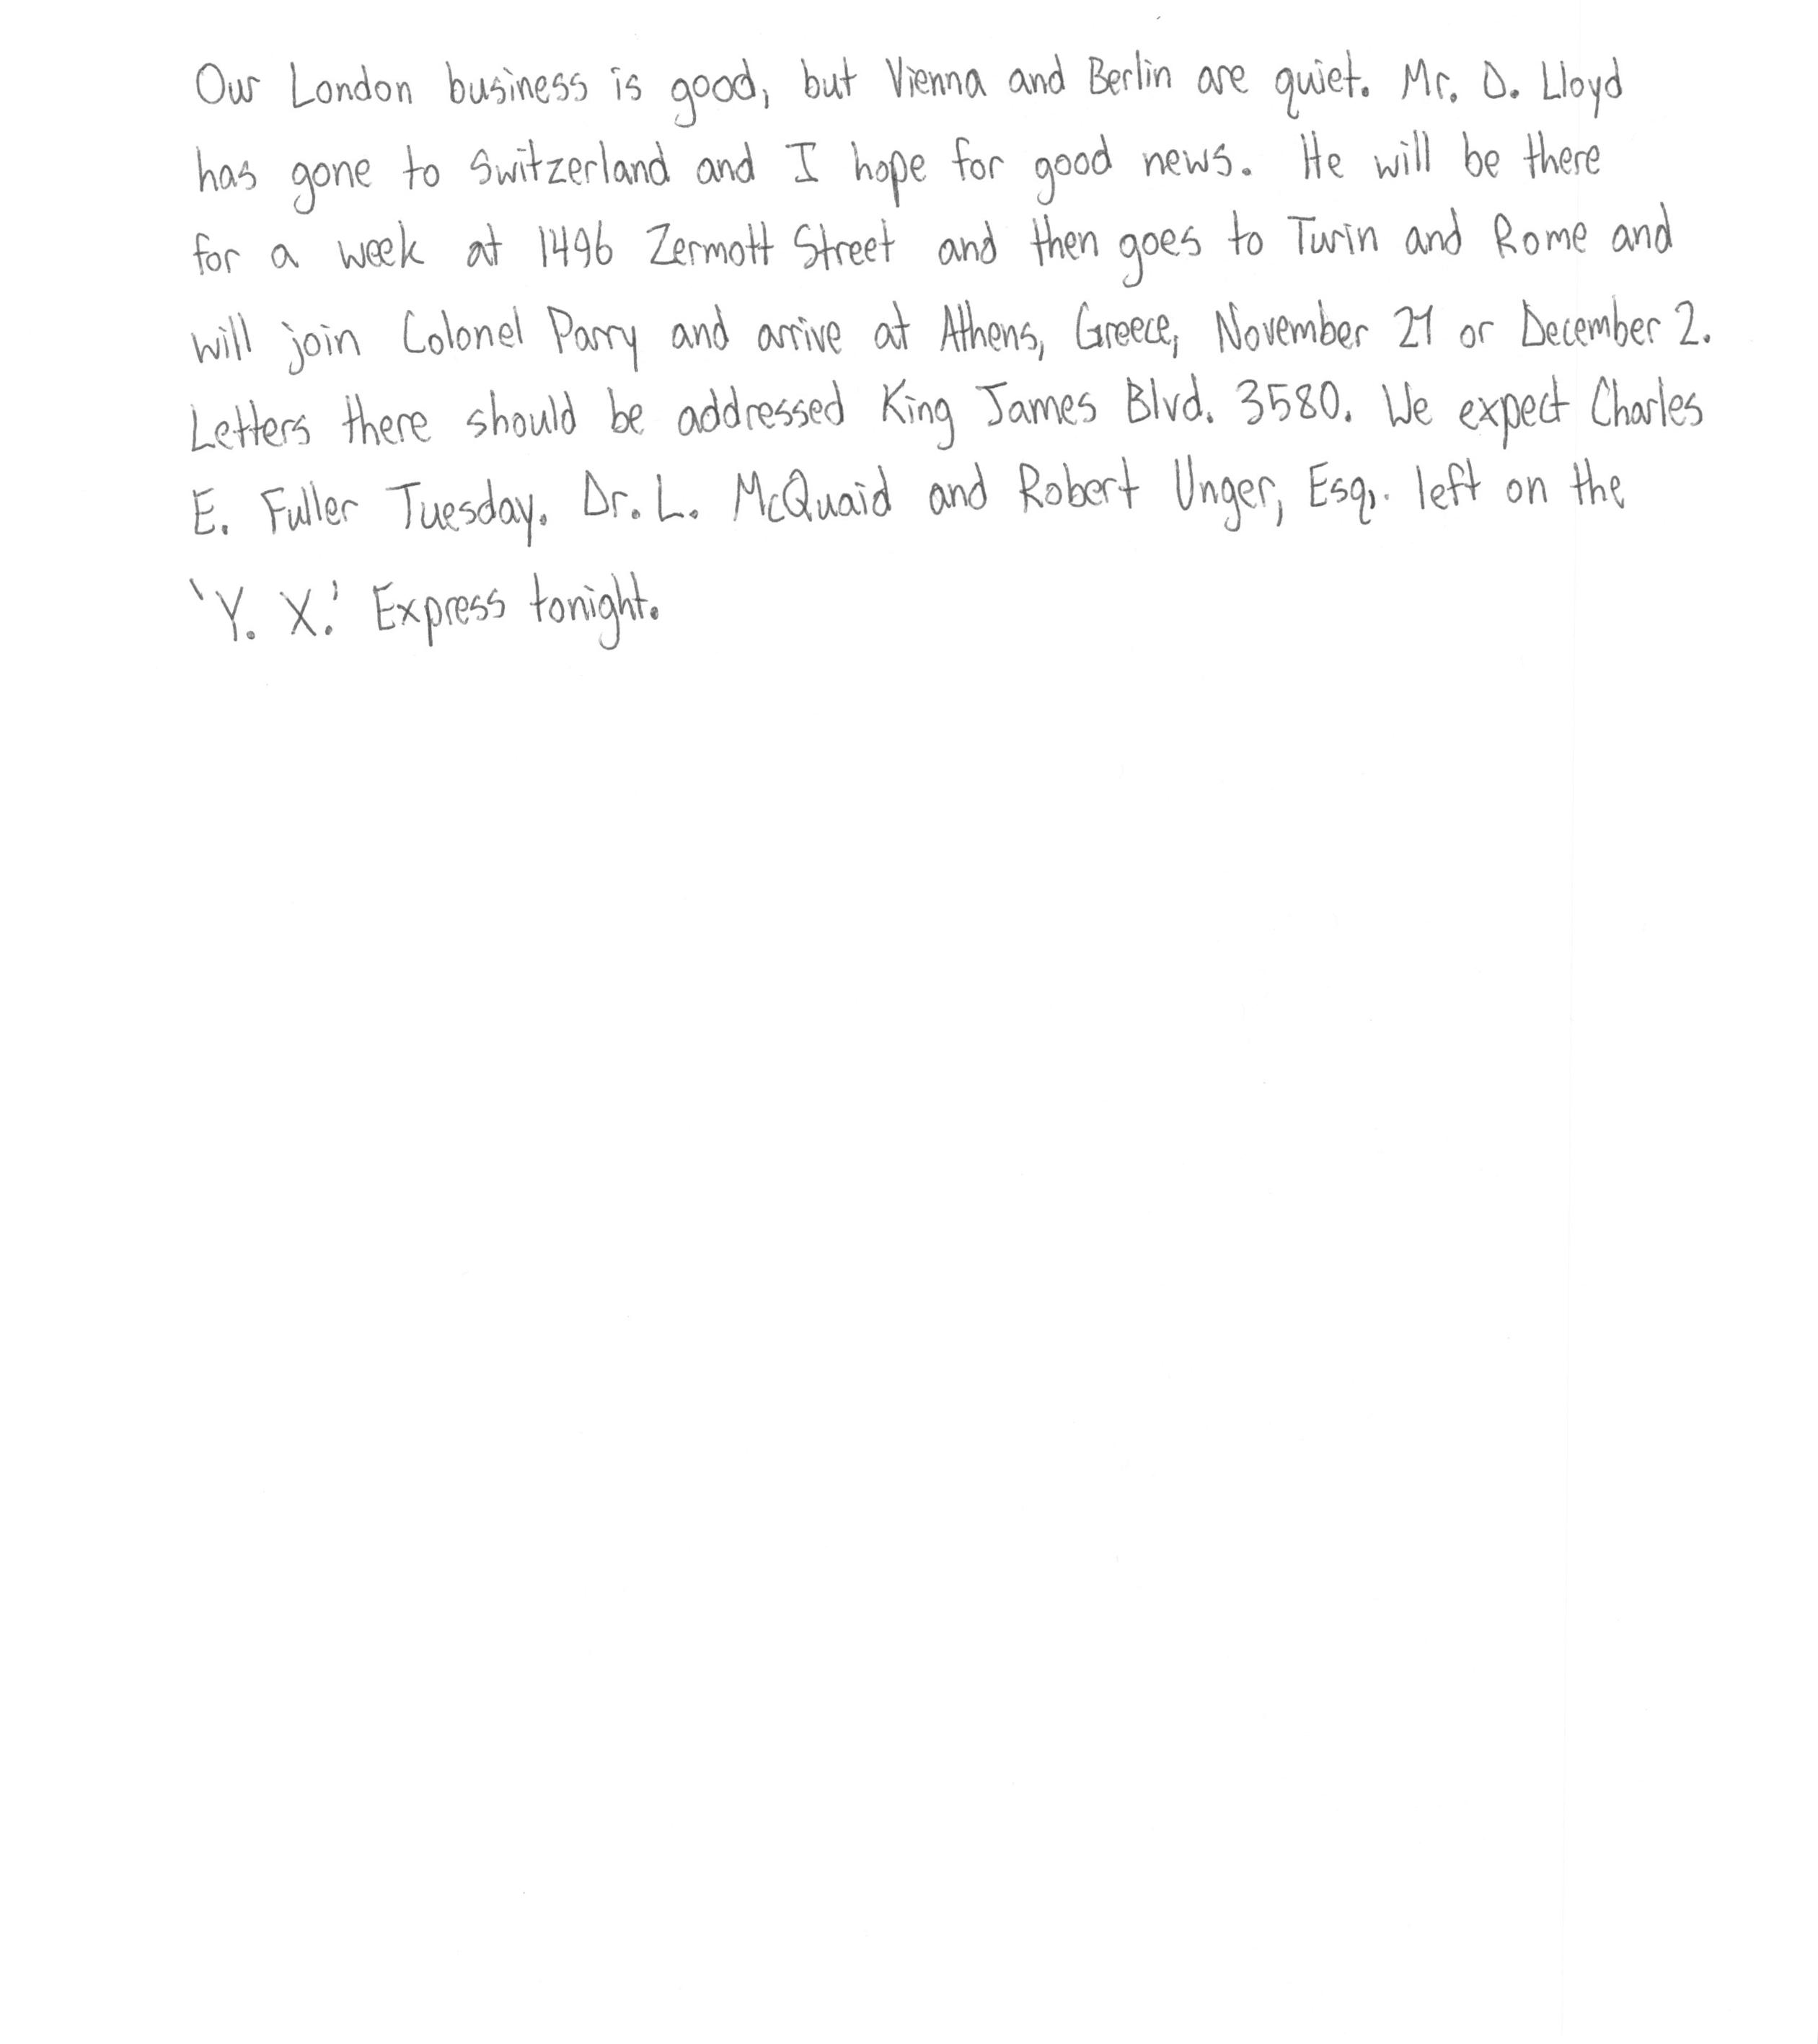 Our London business is good, but Vienna and Berlin are quiet. Mr. D. Lloyd
has gone to Switzerland and I hope for good news. He will be there
for a week at 1496 Zermott Street and then goes to Turin and Rome and
will join Colonel Parry and arrive at Athens, Greece, November 27 or December 2.
Letters there should be addressed King James Blvd. 3580. We expect Charles
E. Fuller Tuesday. Dr. L. McQuaid and Robert Unger, Esq. left on the
'Y. X.' Express tonight.